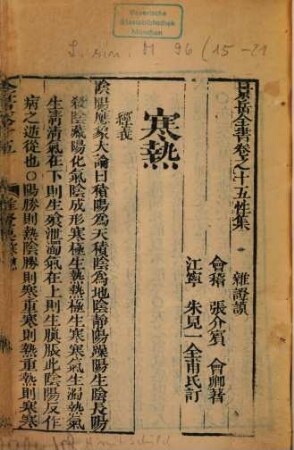 Bayerische
Staatsbibliothek
München
L. sin. H 96 (15-21
景岳全書卷之十五性集 雜證謨
會稽 張介賓 會卿著
江寧 朱見一全甫氏訂
寒熱
經義
陰陽應象大論曰積陽為天積陰為地陰靜陽躁陽生陰長陽
殺陰藏陽化氣陰成形寒極生熱熱極生寒寒氣生濁熱氣
生清清氣在下則生飧泄濁氣在上則生䐜脹此陰陽反作
病之逆從也○陽勝則熱陰勝則寒重寒則熱重熱則寒寒